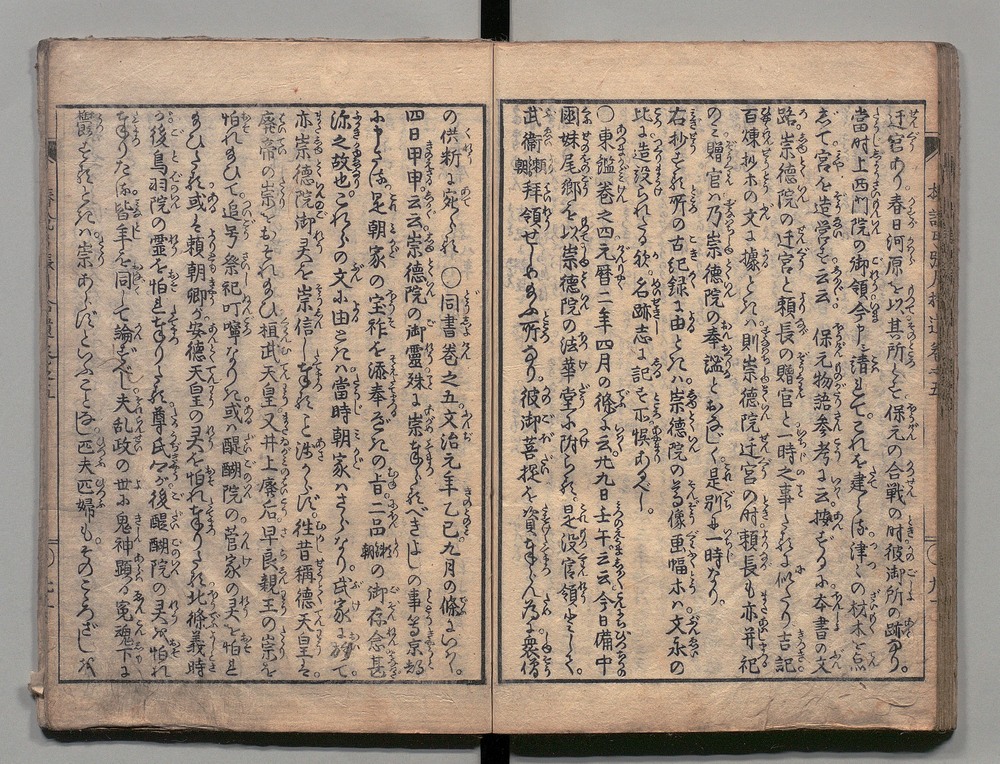 迁宮あり。春日河原を以其所とす。保元の合戦の時彼御所の跡なり。
當時上西門院の御領。今申請して。これを建らる。津々の材木を点
じて宮を造営す云云。保元物語参考に云。按ずるに本書の文
路。崇徳院の迁宮と頼長の贈官と一時之事たるに似たり。吉記
百煉抄ホの文に據るときハ則崇徳院迁宮の時。頼長も亦并祀
のミ。贈官ハ乃崇徳院の奉謚とおなじく是別に一時なり。
右抄する所の古紀録に由ときハ。崇徳院の尊像画幅ホハ。文永の
比に造設られたる歟。名跡志の記も亦惧あるべし。
〇東鑑巻之四元暦二年四月の條に云。廾九日壬午云云。今日備中
國妹尾郷を以。崇徳院の法華堂に附らる。是没官領として。
武衞頼朝拜領せしめ給ふ所なり。彼御菩提を資奉らん為に。衆僧
の供料に宛らる。〇同書巻之五文治元年乙巳九月の條にいハく。
四日甲申云云。崇徳院の御靈殊に崇奉らるべきよしの事等。京都
に申さる。是朝家の宝祚を添奉るべきの旨。二品頼朝の御存念甚
深之故也。これらの文に由ときハ。當時朝家ハさらなり。武家に於て。
亦崇徳院御灵を崇信し奉れること浅からず。徃昔稱徳天皇ハ。
廃帝の祟をおそれ給ひ。桓武天皇又井上廃后早良親王の祟を
怕れ給ひて。追号祭祀叮嚀なりき。或ハ醍醐院の菅家の灵を怕れ
給ひたる。或ハ頼朝卿の安徳天皇の灵を怕れ奉りたる。北條義時
の後鳥羽院の靈を怕れ奉りたる。尊氏公の後醍醐院の灵を怕れ
奉りたる。皆年を同して論ずべし。夫乱政の世に鬼神顕る。寃魂下に
鬱するときハ祟あらずといふことなし。匹夫匹婦も。そのこゝろざしを